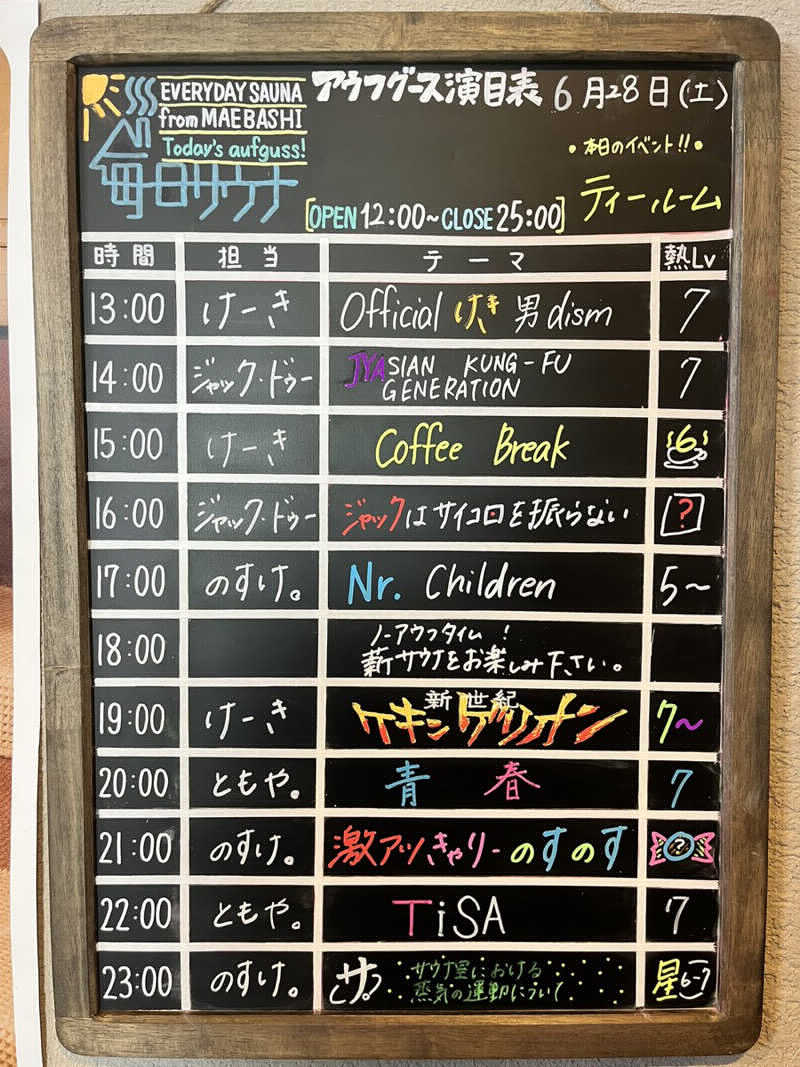 EVERYDAY SAUNA
from MAEBASHI
Today's aufguss!
毎日サウナ
アウフグース演目表 6月28日(土)
・本日のイベント!!・
ティールーム
[OPEN 12:00~CLOSE 25:00]
時間 担当 テーマ 熱Lv
13:00 けーき Official けーき男dism 7
14:00 ジャック・ドゥー JYASIAN KUNG-FU
GENERATION 7
15:00 けーき Coffee Break 6
16:00 ジャック・ドゥー ジャックはサイコロを振らない ?
17:00 のすけ。 Nr. Children 5~
18:00 ノーアウフタイム!
薪サウナをお楽しみ下さい。
19:00 けーき 新世紀
ケキンゲリオン 7~
20:00 ともや。 青春 7
21:00 のすけ。 激アツきゃりーのすのす ?
22:00 ともや。 TiSA 7
23:00 のすけ。 サ サウナ室における
蒸気の運動について 星6-7